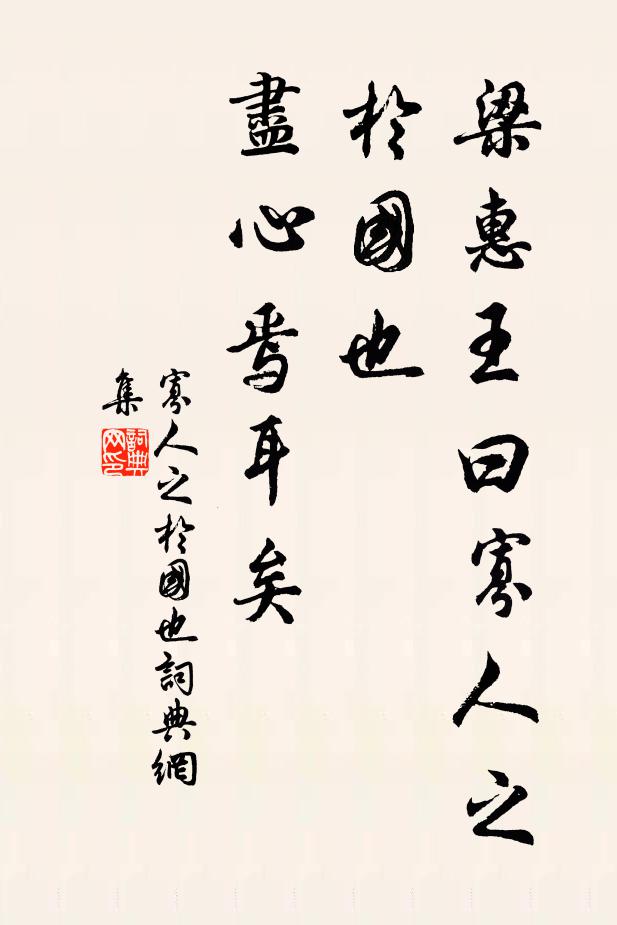 梁惠王曰寡人之
於國也
盡心焉耳矣
寡人之於國也詞典網
集
詞典
网印